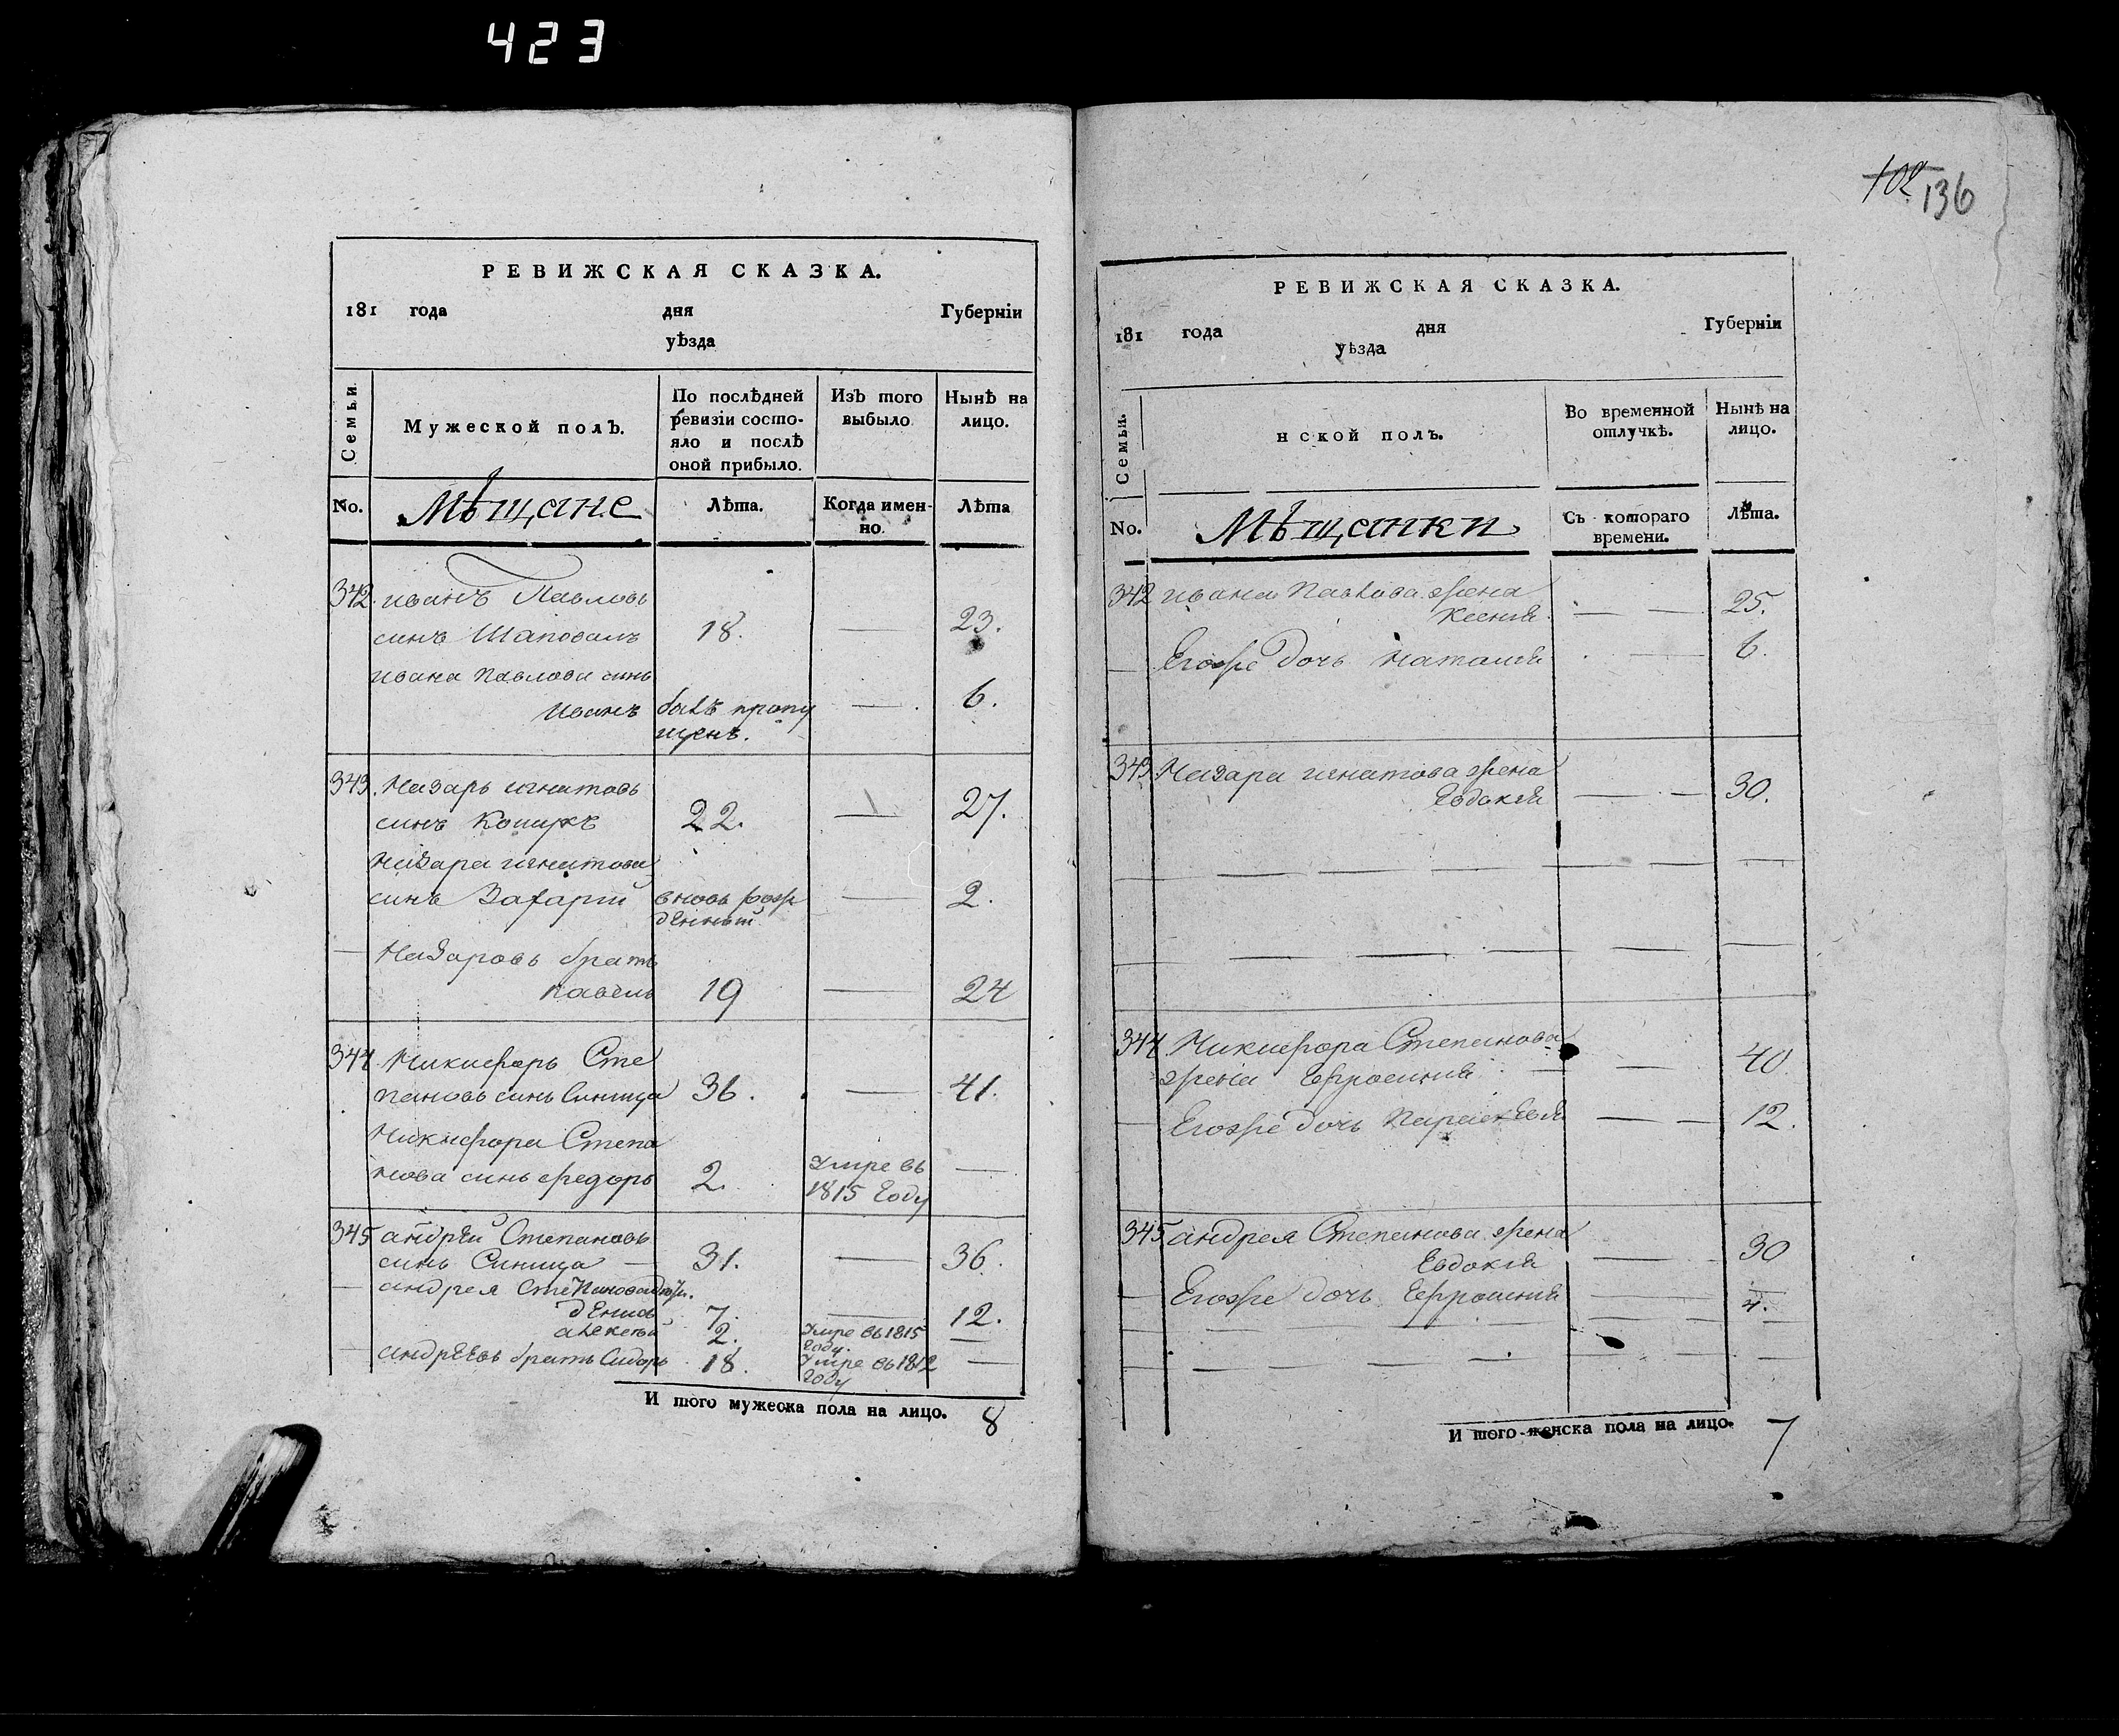 423
РЕВИЖСКАЯ СКАЗКА.
181 года дня Губернїи
уѣзда
Семьи
Мужеской полъ.
По послѣдней
ревизїи состо-
яло и послѣ
оной прибыло.
Изъ того
выбыло
Нынѣ на
лицо.
No.
Мѣщане
Лѣта.
Когда имен-
но.
Лѣта
342. иванъ Павловъ
синъ Шаповалъ 18. — 23.
ивана Павлова синъ
иванъ балъ пропу — 6.
щенъ.
343. Назаръ игнатовъ
синъ 22. — 27.
Назара игнатова
синъ Захарій вновь рож — 2.
денный
— Назаровъ братъ
павелъ 19 — 24
344 Никифоръ Сте
пановъ синъ Синица 36. — 41.
Никифора Степа
нова синъ федоръ 2. Умре въ —
1815 году
345 андрей Степановъ
синъ Синица — 31. — 36.
— андрея Степанова
денисъ 7. — 12.
алексей 2. Умре въ 1815 —
году.
— андреевъ братъ Сидоръ 18. Умре въ 1812 —
году
И того мужеска пола на лицо. 8
102 136
РЕВИЖСКАЯ СКАЗКА.
181 года дня Губернїи
уѣзда
Семьи.
нской полъ.
Во временной
отлучкѣ.
Нынѣ на
лицо.
No.
Мѣщанки
Съ котораго
времени.
Лѣта.
342 ивана Павлова жена
Ксения — — 25.
— Егоже дочь наталия — 6.
343. Назара игнатова жена
Евдокия — — 30.
344 Никифора Степанова
жена Ефросиния — — 40.
— Егоже дочь Параскевия — — 12.
345 андрея Степанова жена
Евдокия — 30
— Егоже дочь Ефросиния — 4.
И того женска пола на лицо. 7